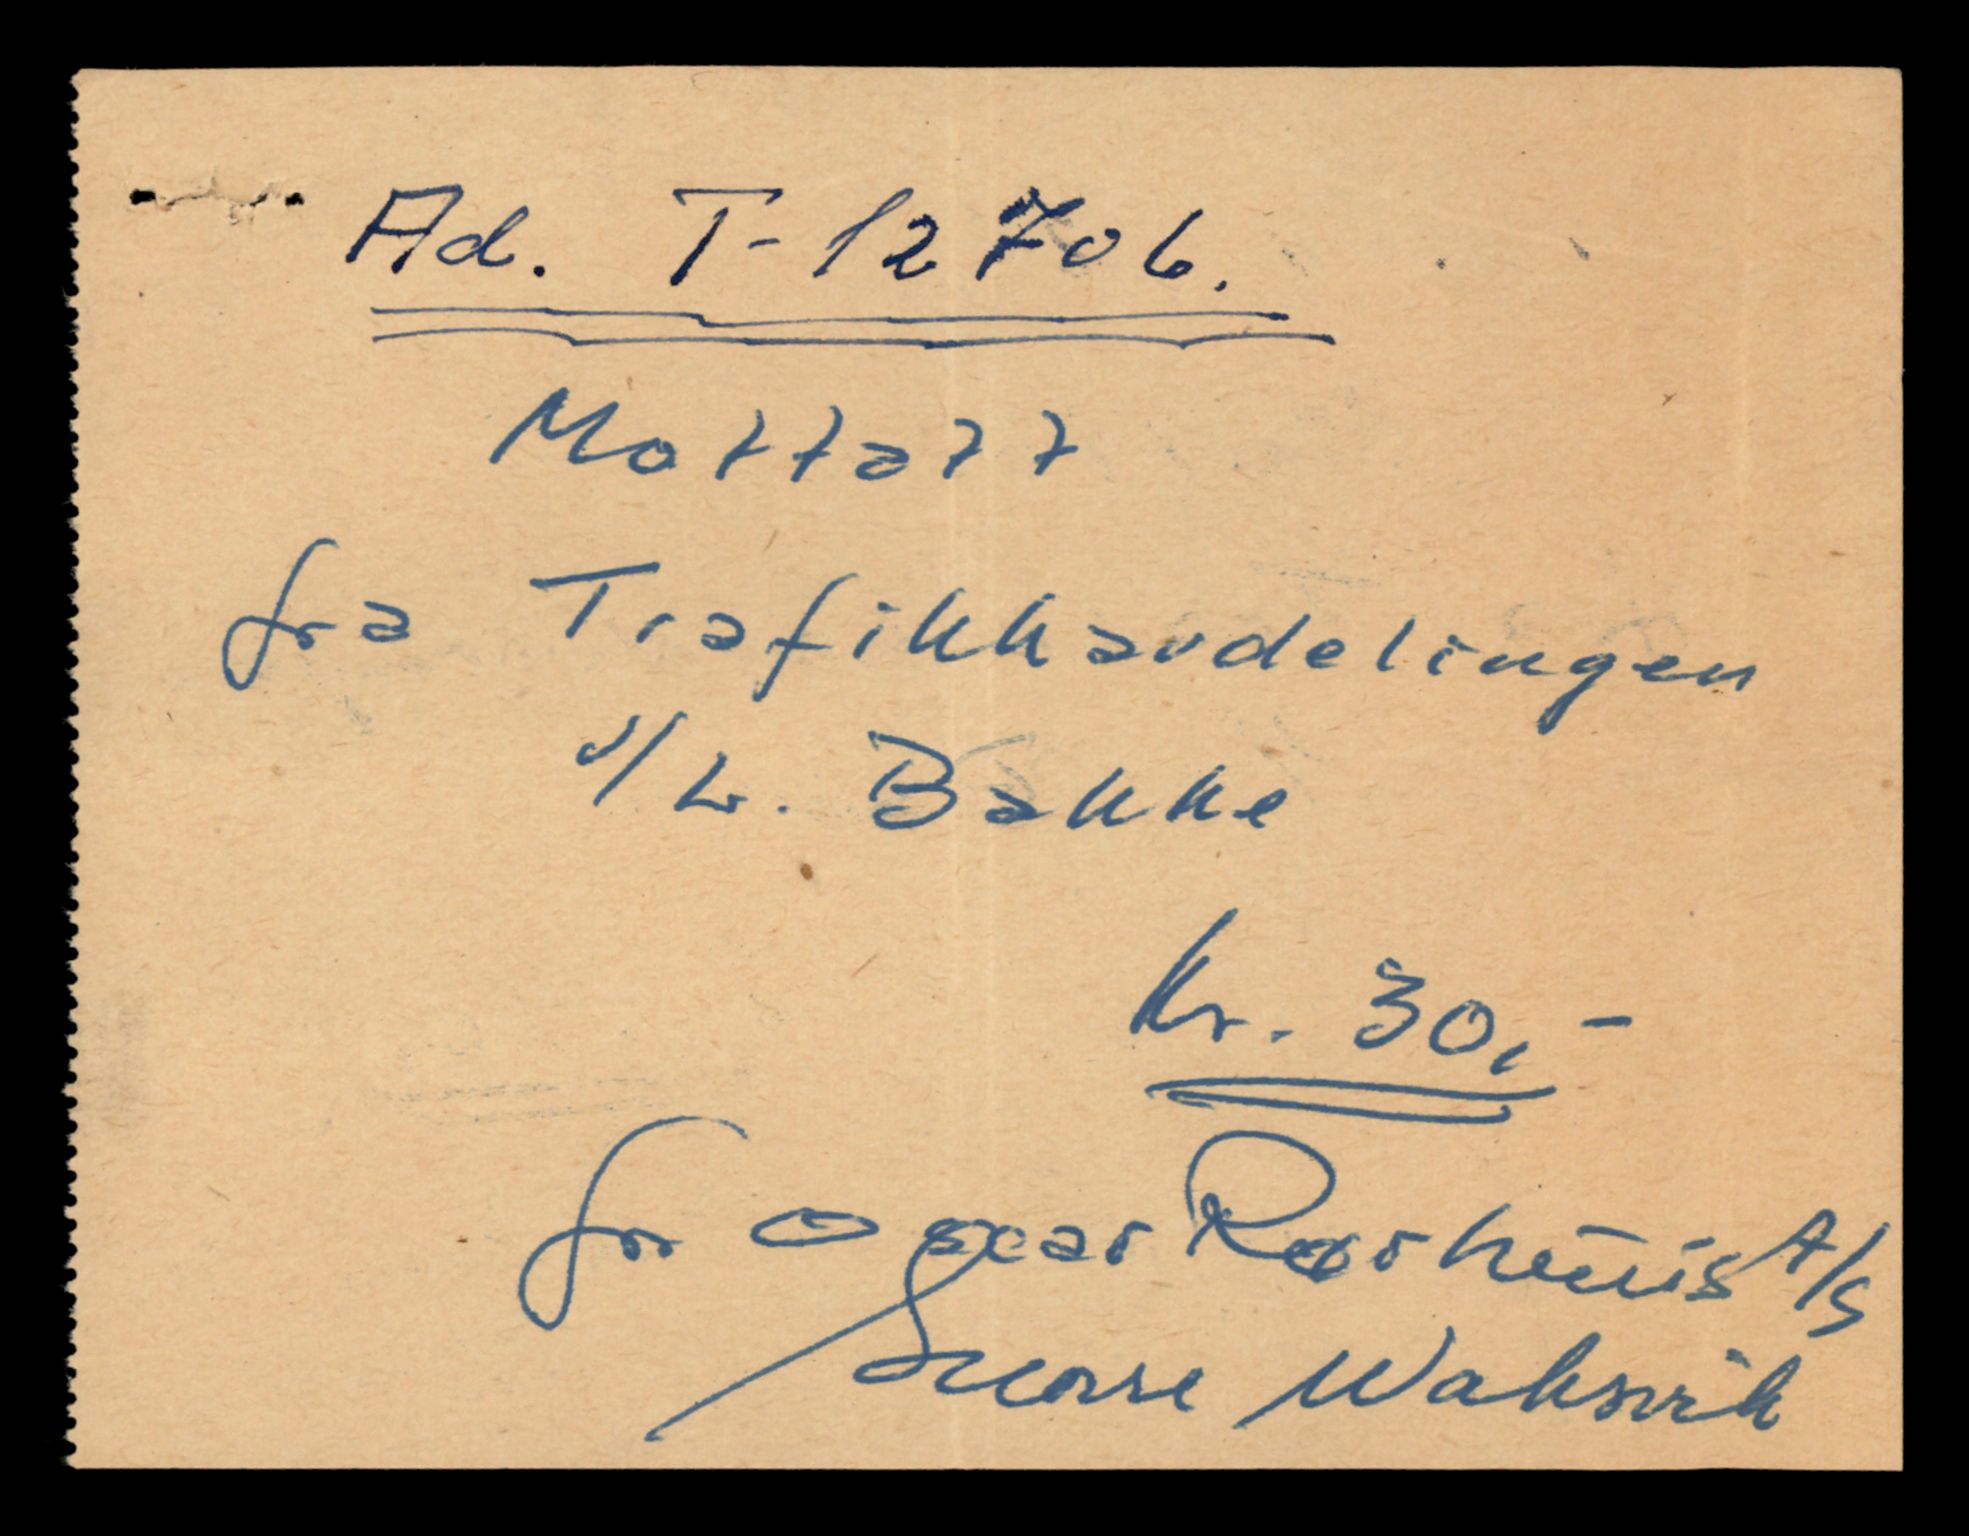 Ad. T-12706.
Mottatt
fra Trafikkavdelingen
v/L. Bakke
Kr. 30,-
for Oscar A/S
Sverre